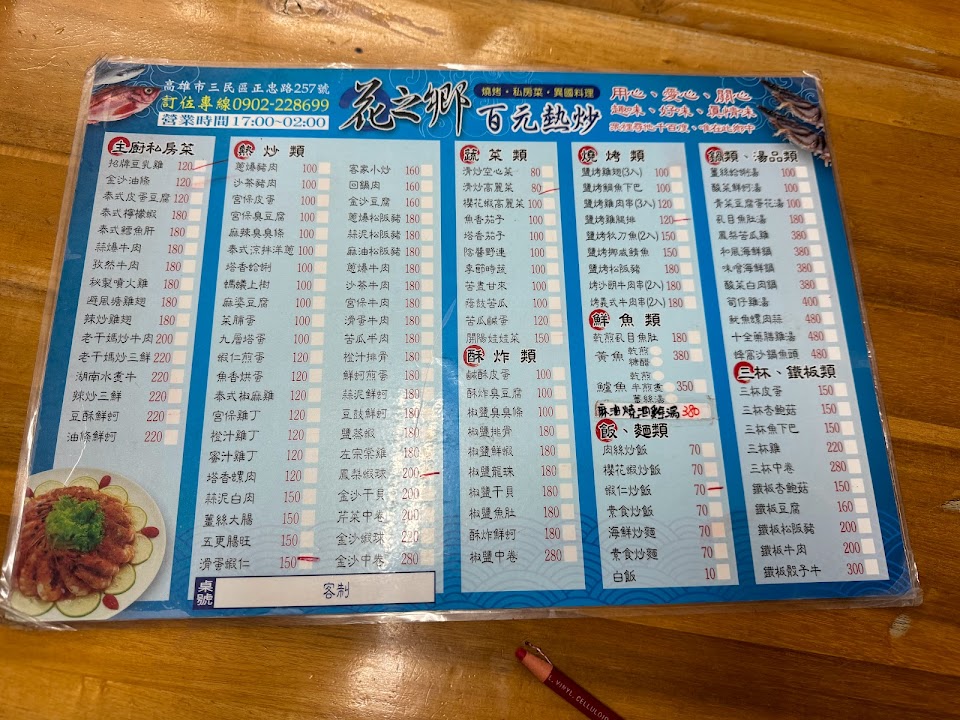 高雄市三民區正忠路257號
訂位專線0902-228699
營業時間17:00~02:00
花之鄉
燒烤・私房菜・異國料理
百元熱炒
用心、愛心、關心
趣味、好味、真情味
眾裡尋他千百度、唯在此鄉中
主廚私房菜
招牌豆乳雞 120
金沙油條 120
泰式皮蛋豆腐 120
泰式檸檬蝦 180
泰式鱈魚肝 180
蒜爆牛肉 180
孜然牛肉 180
秘製噴火雞 180
避風塘雞翅 180
辣炒雞翅 180
老干媽炒牛肉 200
老干媽炒三鮮 220
湖南水煮牛 220
辣炒三鮮 220
豆酥鮮蚵 220
油條鮮蚵 220
熱炒類
蔥爆豬肉 100
沙茶豬肉 100
宮保皮蛋 100
宮保臭豆腐 100
麻辣臭臭條 100
泰式涼拌洋蔥 100
塔香蛤蜊 100
螞蟻上樹 100
麻婆豆腐 100
菜脯蛋 100
九層塔蛋 100
蝦仁煎蛋 120
魚香烘蛋 120
泰式椒麻雞 120
宮保雞丁 120
橙汁雞丁 120
蜜汁雞丁 120
塔香螺肉 150
蒜泥白肉 150
薑絲大腸 150
五更腸旺 150
滑蛋蝦仁 150
客家小炒 160
回鍋肉 160
金沙豆腐 160
蔥爆松阪豬 180
蒜泥松阪豬 180
麻油松阪豬 180
蔥爆牛肉 180
沙茶牛肉 180
宮保牛肉 180
滑蛋牛肉 180
苦瓜牛肉 180
橙汁排骨 180
鮮蚵煎蛋 180
蒜泥鮮蚵 180
豆豉鮮蚵 180
鹽蒸蝦 180
左宗棠雞 180
鳳梨蝦球 200
金沙干貝 200
芹菜中卷 200
金沙蝦球 220
金沙中卷 280
蔬菜類
清炒空心菜 80
清炒高麗菜 80
櫻花蝦高麗菜 100
魚香茄子 100
塔香茄子 100
破布野蓮 100
季節時蔬 100
苦盡甘來 100
蔭豉苦瓜 100
苦瓜鹹蛋 120
開陽娃娃菜 150
酥炸類
鹹酥皮蛋 100
酥炸臭豆腐 100
椒鹽臭臭條 100
椒鹽排骨 180
椒鹽鮮蝦 180
椒鹽龍珠 180
椒鹽干貝 180
椒鹽魚肚 180
酥炸鮮蚵 180
椒鹽中卷 280
燒烤類
鹽烤雞翅(3入) 100
鹽烤鯛魚下巴 100
鹽烤雞肉串(3入) 120
鹽烤雞腿排 120
鹽烤秋刀魚(2入) 150
鹽烤挪威鯖魚 150
鹽烤松阪豬 180
烤沙朗牛肉串(2入) 180
烤義式牛肉串(2入) 180
鮮魚類
乾煎虱目魚肚 180
黃魚 乾煎 糖醋 380
鱸魚 乾煎 半煎煮 薑絲湯 350
麻油燒酒雞湯 380
飯、麵類
肉絲炒飯 70
櫻花蝦炒飯 70
蝦仁炒飯 70
素食炒飯 70
海鮮炒麵 70
素食炒麵 70
白飯 10
鍋類、湯品類
薑絲蛤蜊湯 100
酸菜鮮蚵湯 100
青菜豆腐蛋花湯 100
虱目魚肚湯 180
鳳梨苦瓜雞 380
和風海鮮鍋 380
味噌海鮮鍋 380
酸菜白肉鍋 380
筍仔雞湯 400
魷魚螺肉蒜 480
十全藥膳雞湯 480
蜂窩沙鍋魚頭 480
三杯、鐵板類
三杯皮蛋 150
三杯杏鮑菇 150
三杯魚下巴 150
三杯雞 220
三杯中卷 280
鐵板杏鮑菇 150
鐵板豆腐 160
鐵板松阪豬 200
鐵板牛肉 200
鐵板骰子牛 300
桌號
客制
VINYL. CELLULOID